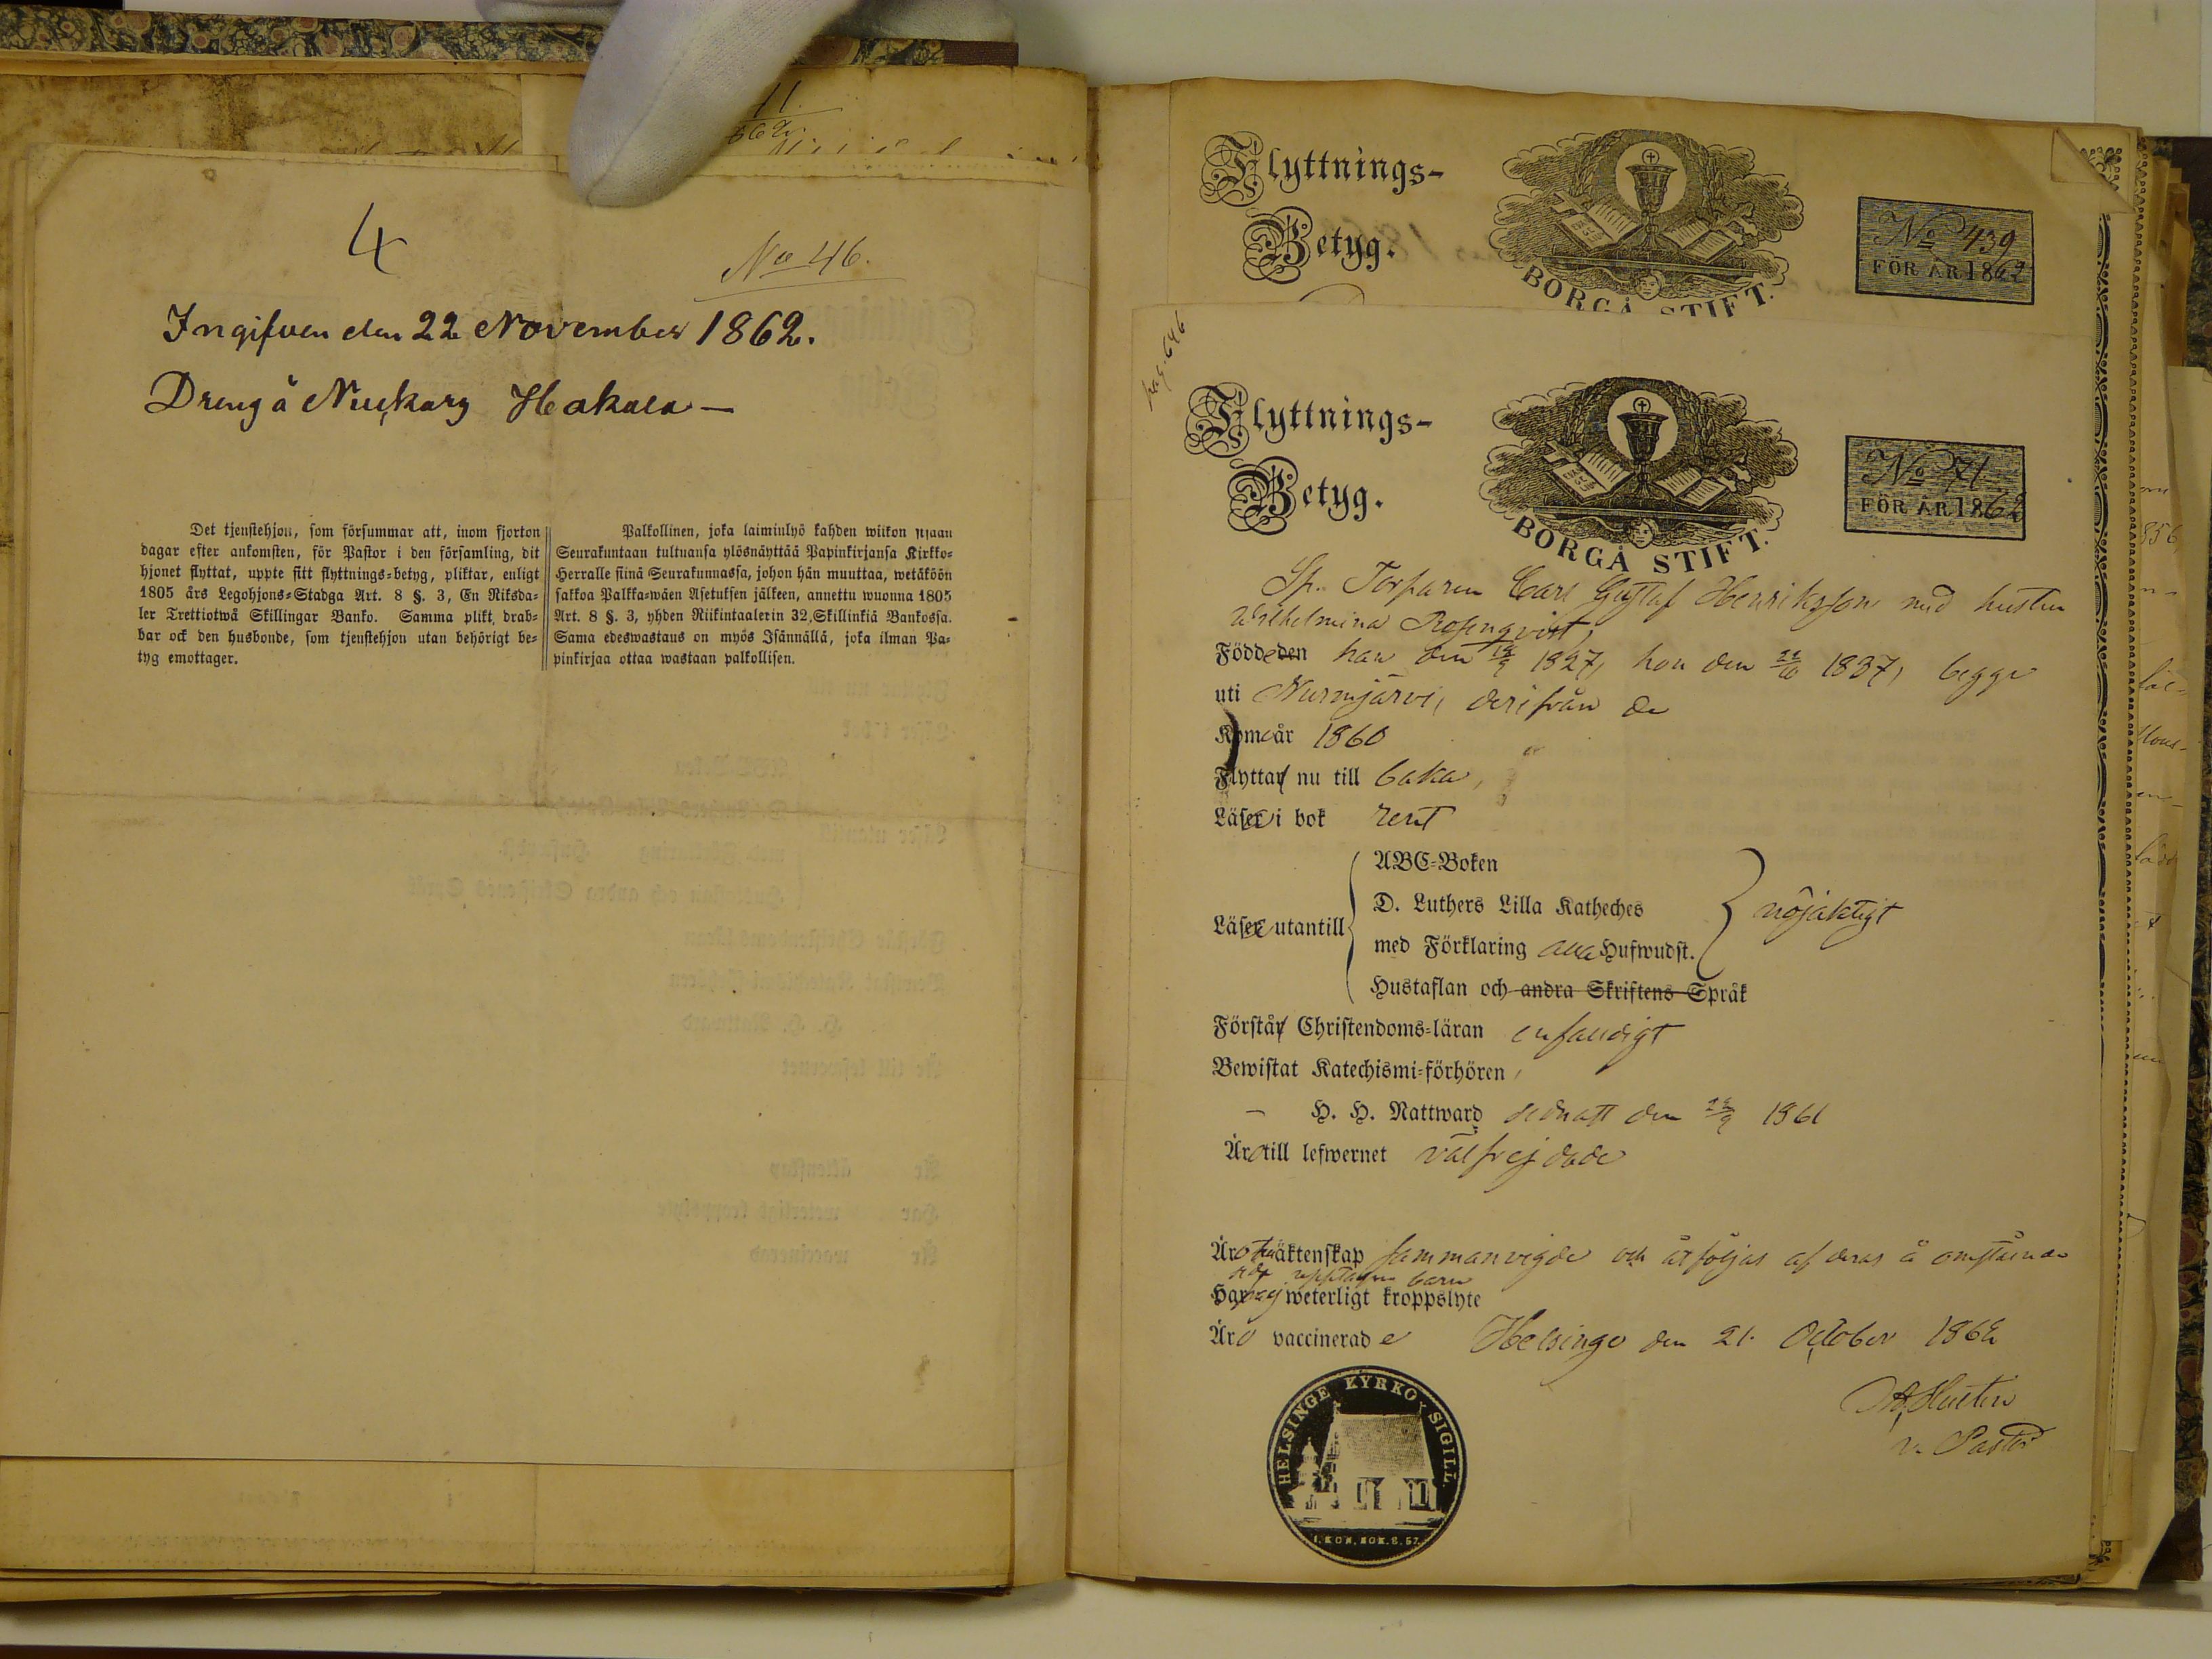 4
No 46.
Ingifven den 22 November 1862.
Dreng å Nuckary Hakala —
Det tjenstehjon, som försummar att, inom fjorton
dagar efter ankomsten, för Pastor i den församling, dit
hjonet flyttat, uppte sitt flyttnings-betyg, pliktar, enligt
1805 års Legohjons-Stadga Art. 8 §. 3, En Riksda-
ler Trettiotwå Skillingar Banko. Samma plikt drab-
bar ock den husbonde, som tjenstehjon utan behörigt be-
tyg emottager.
Palkollinen, joka laiminlyö kahden wiikon sisaan
Seurakuntaan tultuansa ylösnäyttää Papinkirjansa Kirkko-
Herralle siinä Seurakunnassa, johon hän muuttaa, wetäköön
sakkoa Palkka-wäen Asetuksen jälkeen, annettu wuonna 1805
Art. 8 §. 3, yhden Riikintaalerin 32 Skillinkiä Bankossa.
Sama edeswastaus on myös Isännällä, joka ilman Pa-
pinkirjaa ottaa wastaan palkollisen.
Flyttnings-
Betyg.
BORGÅ STIFT.
No 439
FÖR ÅR 1862
pag. 646
Flyttnings-
Betyg.
BORGÅ STIFT.
No 71
FÖR ÅR 1862
Sp. Torparen Carl Gustaf Henriksson med hustru
Wilhelmina Rosenqvist,
Födde den han den 1827, hon den 1837, begge
uti Nurmijärvi, derifrån de
Komo år 1860
Flytta nu till baka,
Läsa i bok rent
Läsa utantill
ABC-Boken
D. Luthers Lilla Katheches
med Förklaring Hufwudst.
Hustaflan och andra Skriftens Språk
nöjaktigt
Förstå Christendoms-läran enfaldigt
Bewistat Katechismi-förhören,
— H. H. Nattward sednast den 1861
Äro till lefwernet välfrejdade
Äro äktenskap sammanvigde och åtföljas af deras å omstående
sida upptagne barn
Ha ej weterligt kroppslyte
Äro vaccinerade Helsinge den 21 October 1862
v. Pastor
HELSINGE KYRKO SIGILL
I. KON. BOK. 8. 57.